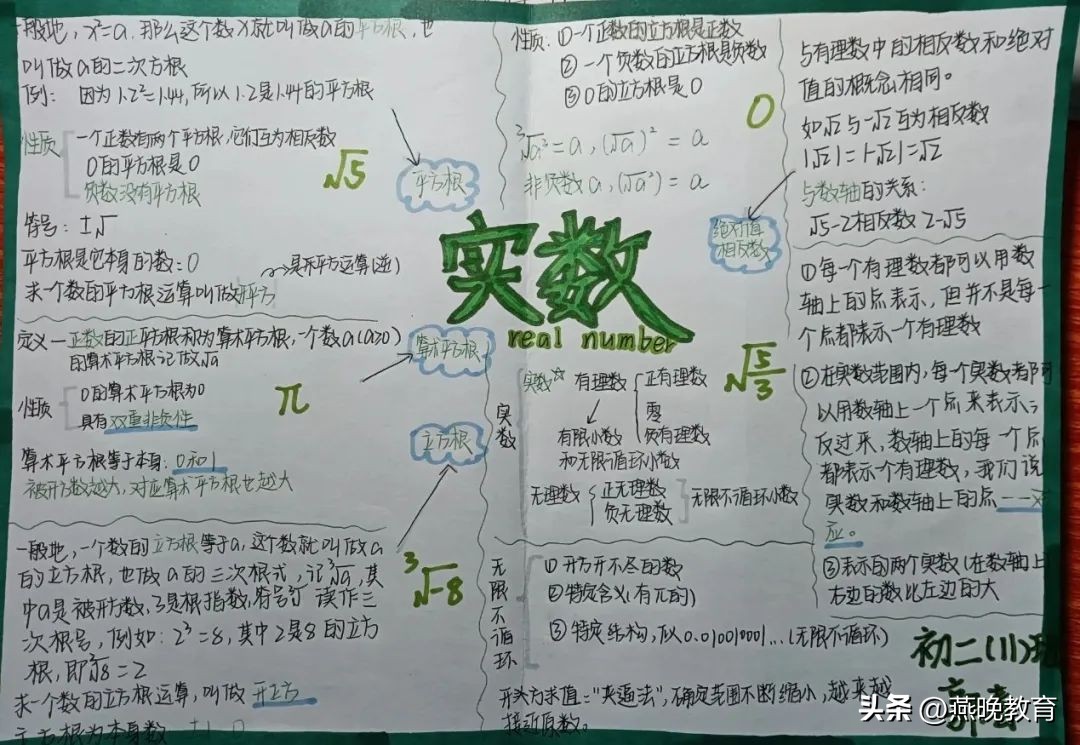 一般地，x²=a，那么这个数x就叫做a的平方根，也
叫做a的二次方根
例：因为1.2²=1.44，所以1.2是1.44的平方根
性质
一个正数有两个平方根，它们互为相反数
0的平方根是0
负数没有平方根
√5
平方根
符号：±√
平方根是它本身的数：0
是乘平方运算(逆)
求一个数的平方根运算叫做开平方
定义—正数的正平方根称为算术平方根，一个数a(a≥0)
的算术平方根记做√a
算术平方根
性质
0的算术平方根为0
具有双重非负性
π
算术平方根等于本身：0和1
被开方数越大，对应算术平方根也越大
立方根
一般地，一个数的立方根等于a，这个数就叫做a
的立方根，也做a的三次根式，记³√a，其
中a是被开方数，3是根指数，符号³√ 读作三
次根号，例如：2³=8，其中2是8的立方
根，即³√8=2
³√-8
求一个数的立方根运算，叫做开立方
立方根为本身数 ±1 0
性质：①一个正数的立方根是正数
②一个负数的立方根是负数
③0的立方根是0
³√a³=a，(³√a)³=a
非负数a，(√a²)=a
0
实数
real number
√5/3
实数
实数☆
有理数
正有理数
零
负有理数
有限小数
和无限循环小数
无理数
正无理数
负无理数
无限不循环小数
无限不循环
①开方开不尽的数
②特定含义(有π的)
③特定结构，似0.010010001...(无限不循环)
开头方求值="夹逼法"，确定范围不断缩小，越来越
接近原数。
绝对值
相反数
与有理数中的相反数和绝对
值的概念相同。
如√2与-√2互为相反数
|√2|=|-√2|=√2
与数轴的关系：
√5-2相反数 2-√5
①每一个有理数都可以用数
轴上的点表示，但并不是每一
个点都表示一个有理数
②在实数范围内，每一个实数都可
以用数轴上一个点来表示；
反过来，数轴上的每一个点
都表示个有理数，我们说
实数和数轴上的点一一对
应。
③表示的两个实数(在数轴上
右边的数比左边的大
初二(11)班
头条 @燕晚教育